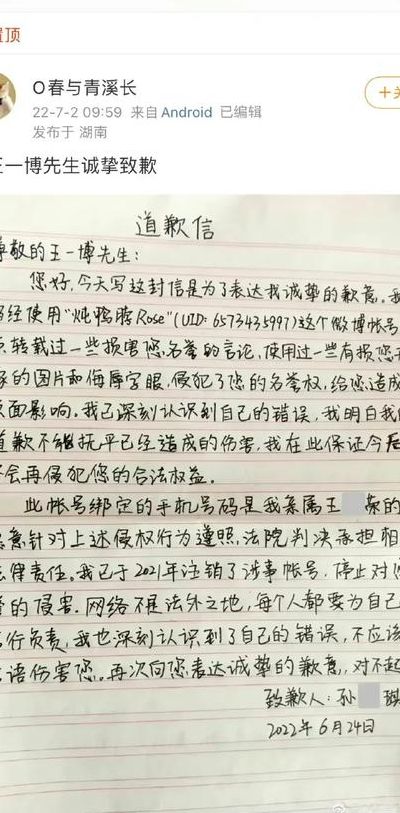 置顶
O春与青溪长
22-7-2 09:59 来自Android 已编辑
发布于 湖南
+关
王一博先生诚挚致歉
道歉信
尊敬的王一博先生：
您好，今天写这封信是为了表达我诚挚的歉意。我
曾经使用"炖鸭腾Rose"(UID: 6573435997)这个微博帐号
转载过一些损害您名誉的言论，使用过一些有损您
的图片和侮辱字眼，侵犯了您的名誉权，给您造成
负面影响。我已深刻认识到自己的错误，我明白我的
道歉不能抚平已经造成的伤害，我在此保证今后
不会再侵犯您的合法权益。
此帐号绑定的手机号码是我亲属王 荣的
愿意针对上述侵权行为遵照，法院判决承担相
法律责任。我已于2021年注销了涉事帐号，停止对您
的侵害。网络不是法外之地，每个人都要为自己
言行负责，我也深刻认识到了自己的错误，不应该
言语伤害您。再次向您表达诚挚的歉意，对不起
致歉人：孙 琪
2022年6月24日